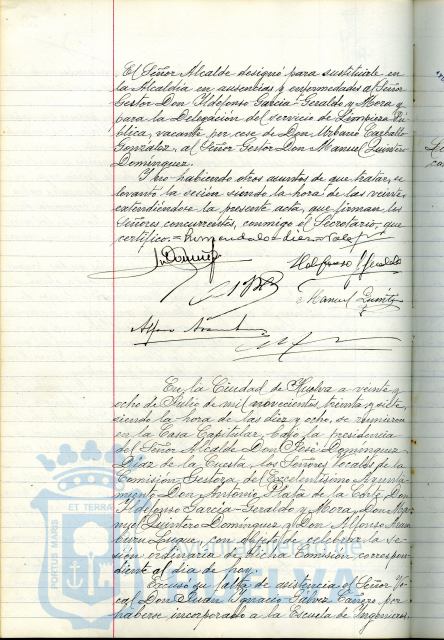 El Señor Alcalde designó para sustituirle en
la Alcaldía en ausencias y enfermedades al Señor
Gestor Don Ildefonso García-Geraldo y Mora y
para la Delegación del servicio de Limpieza Pú-
blica, vacante por cese de Don Urbano Carballo
González, al Señor Gestor Don Manuel Quintero
Domínguez.
Y no habiendo otros asuntos de que tratar, se
levantó la sesión siendo la hora de las veinte,
extendiéndose la presente acta, que firman los
Señores concurrentes, conmigo el Secretario, que
certifico.=
Manuel Quintero
En la Ciudad de Huelva a veinte y
ocho de Julio de mil novecientos treinta y siete
siendo la hora de las diez y ocho, se reunieron
en la Casa Capitular bajo la presidencia
del Señor Alcalde Don José Domínguez
Díaz de la Cuesta, los Señores Vocales de la
Comisión Gestora, del Excelentísimo Ayunta-
miento Don Antonio Plata de la Corte, Don
Ildefonso García-Geraldo y Mora, Don Ma-
nuel Quintero Domínguez y Don Alfonso Aram-
buru Luque, con objeto de celebrar la se-
sión ordinaria de dicha Comisión, correspon-
diente al día de hoy.
Excusó su falta de asistencia el Señor Vo-
cal Don Juan Ignacio Gálvez Cañero por
haberse incorporado a la Escuela de Ingenieros,
PORTUS MARIS
ET TERRAE
HUELVA